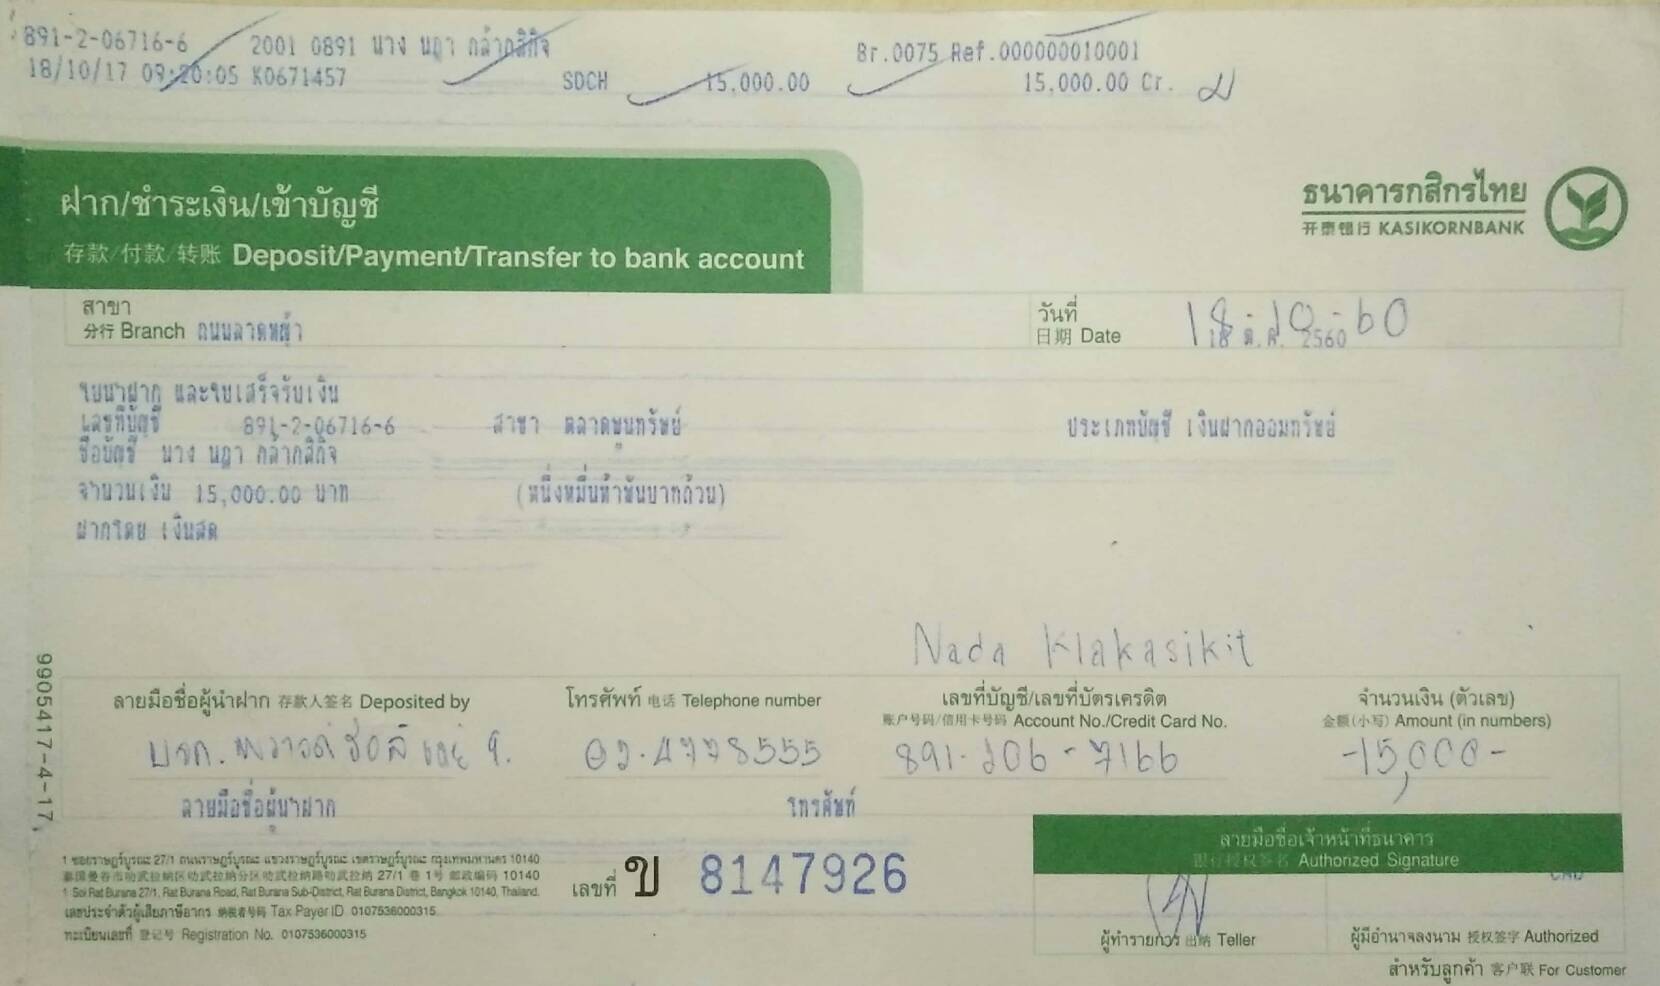 891-2-06716-6 2001 0891 นาง นฎา กล้ากสิกิจ Br.0075 Ref.000000010001
18/10/17 09:20:05 K0671457 SDCH 15,000.00 15,000.00 Cr.
ฝาก/ชำระเงิน/เข้าบัญชี
存款/付款/转账 Deposit/Payment/Transfer to bank account
ธนาคารกสิกรไทย
开泰银行 KASIKORNBANK
สาขา
分行 Branch ถนนลาดหญ้า
วันที่
日期 Date 18-10-60
18 ต.ค. 2560
ใบนำฝาก และใบเสร็จรับเงิน
เลขที่บัญชี 891-2-06716-6 สาขา ตลาดพูนทรัพย์ ประเภทบัญชี เงินฝากออมทรัพย์
ชื่อบัญชี นาง นฎา กล้ากสิกิจ
จำนวนเงิน 15,000.00 บาท (หนึ่งหมื่นห้าพันบาทถ้วน)
ฝากโดย เงินสด
Nada Klakasikit
ลายมือชื่อผู้นำฝาก 存款人签名 Deposited by
โทรศัพท์ 电话 Telephone number
เลขที่บัญชี/เลขที่บัตรเครดิต
账户号码/信用卡号码 Account No./Credit Card No.
จำนวนเงิน (ตัวเลข)
金额(小写) Amount (in numbers)
02-4778555 891-206-7166 -15,000-
ลายมือชื่อผู้นำฝาก โทรศัพท์
9905417-4-17,
1 ซอยราษฎร์บูรณะ 27/1 ถนนราษฎร์บูรณะ แขวงราษฎร์บูรณะ เขตราษฎร์บูรณะ กรุงเทพมหานคร 10140
泰国曼谷市叻武拉纳区叻武拉纳分区叻武拉纳路叻武拉纳 27/1 巷 1号 邮政编码 10140
1 Soi Rat Burana 27/1, Rat Burana Road, Rat Burana Sub-District, Rat Burana District, Bangkok 10140, Thailand.
เลขประจำตัวผู้เสียภาษีอากร 纳税者号码 Tax Payer ID 0107536000315
ทะเบียนเลขที่ 登记号 Registration No. 0107536000315
เลขที่ ข 8147926
ลายมือชื่อเจ้าหน้าที่ธนาคาร
银行授权签名 Authorized Signature
ผู้ทำรายการ 出纳 Teller
ผู้มีอำนาจลงนาม 授权签字 Authorized
สำหรับลูกค้า 客户联 For Customer